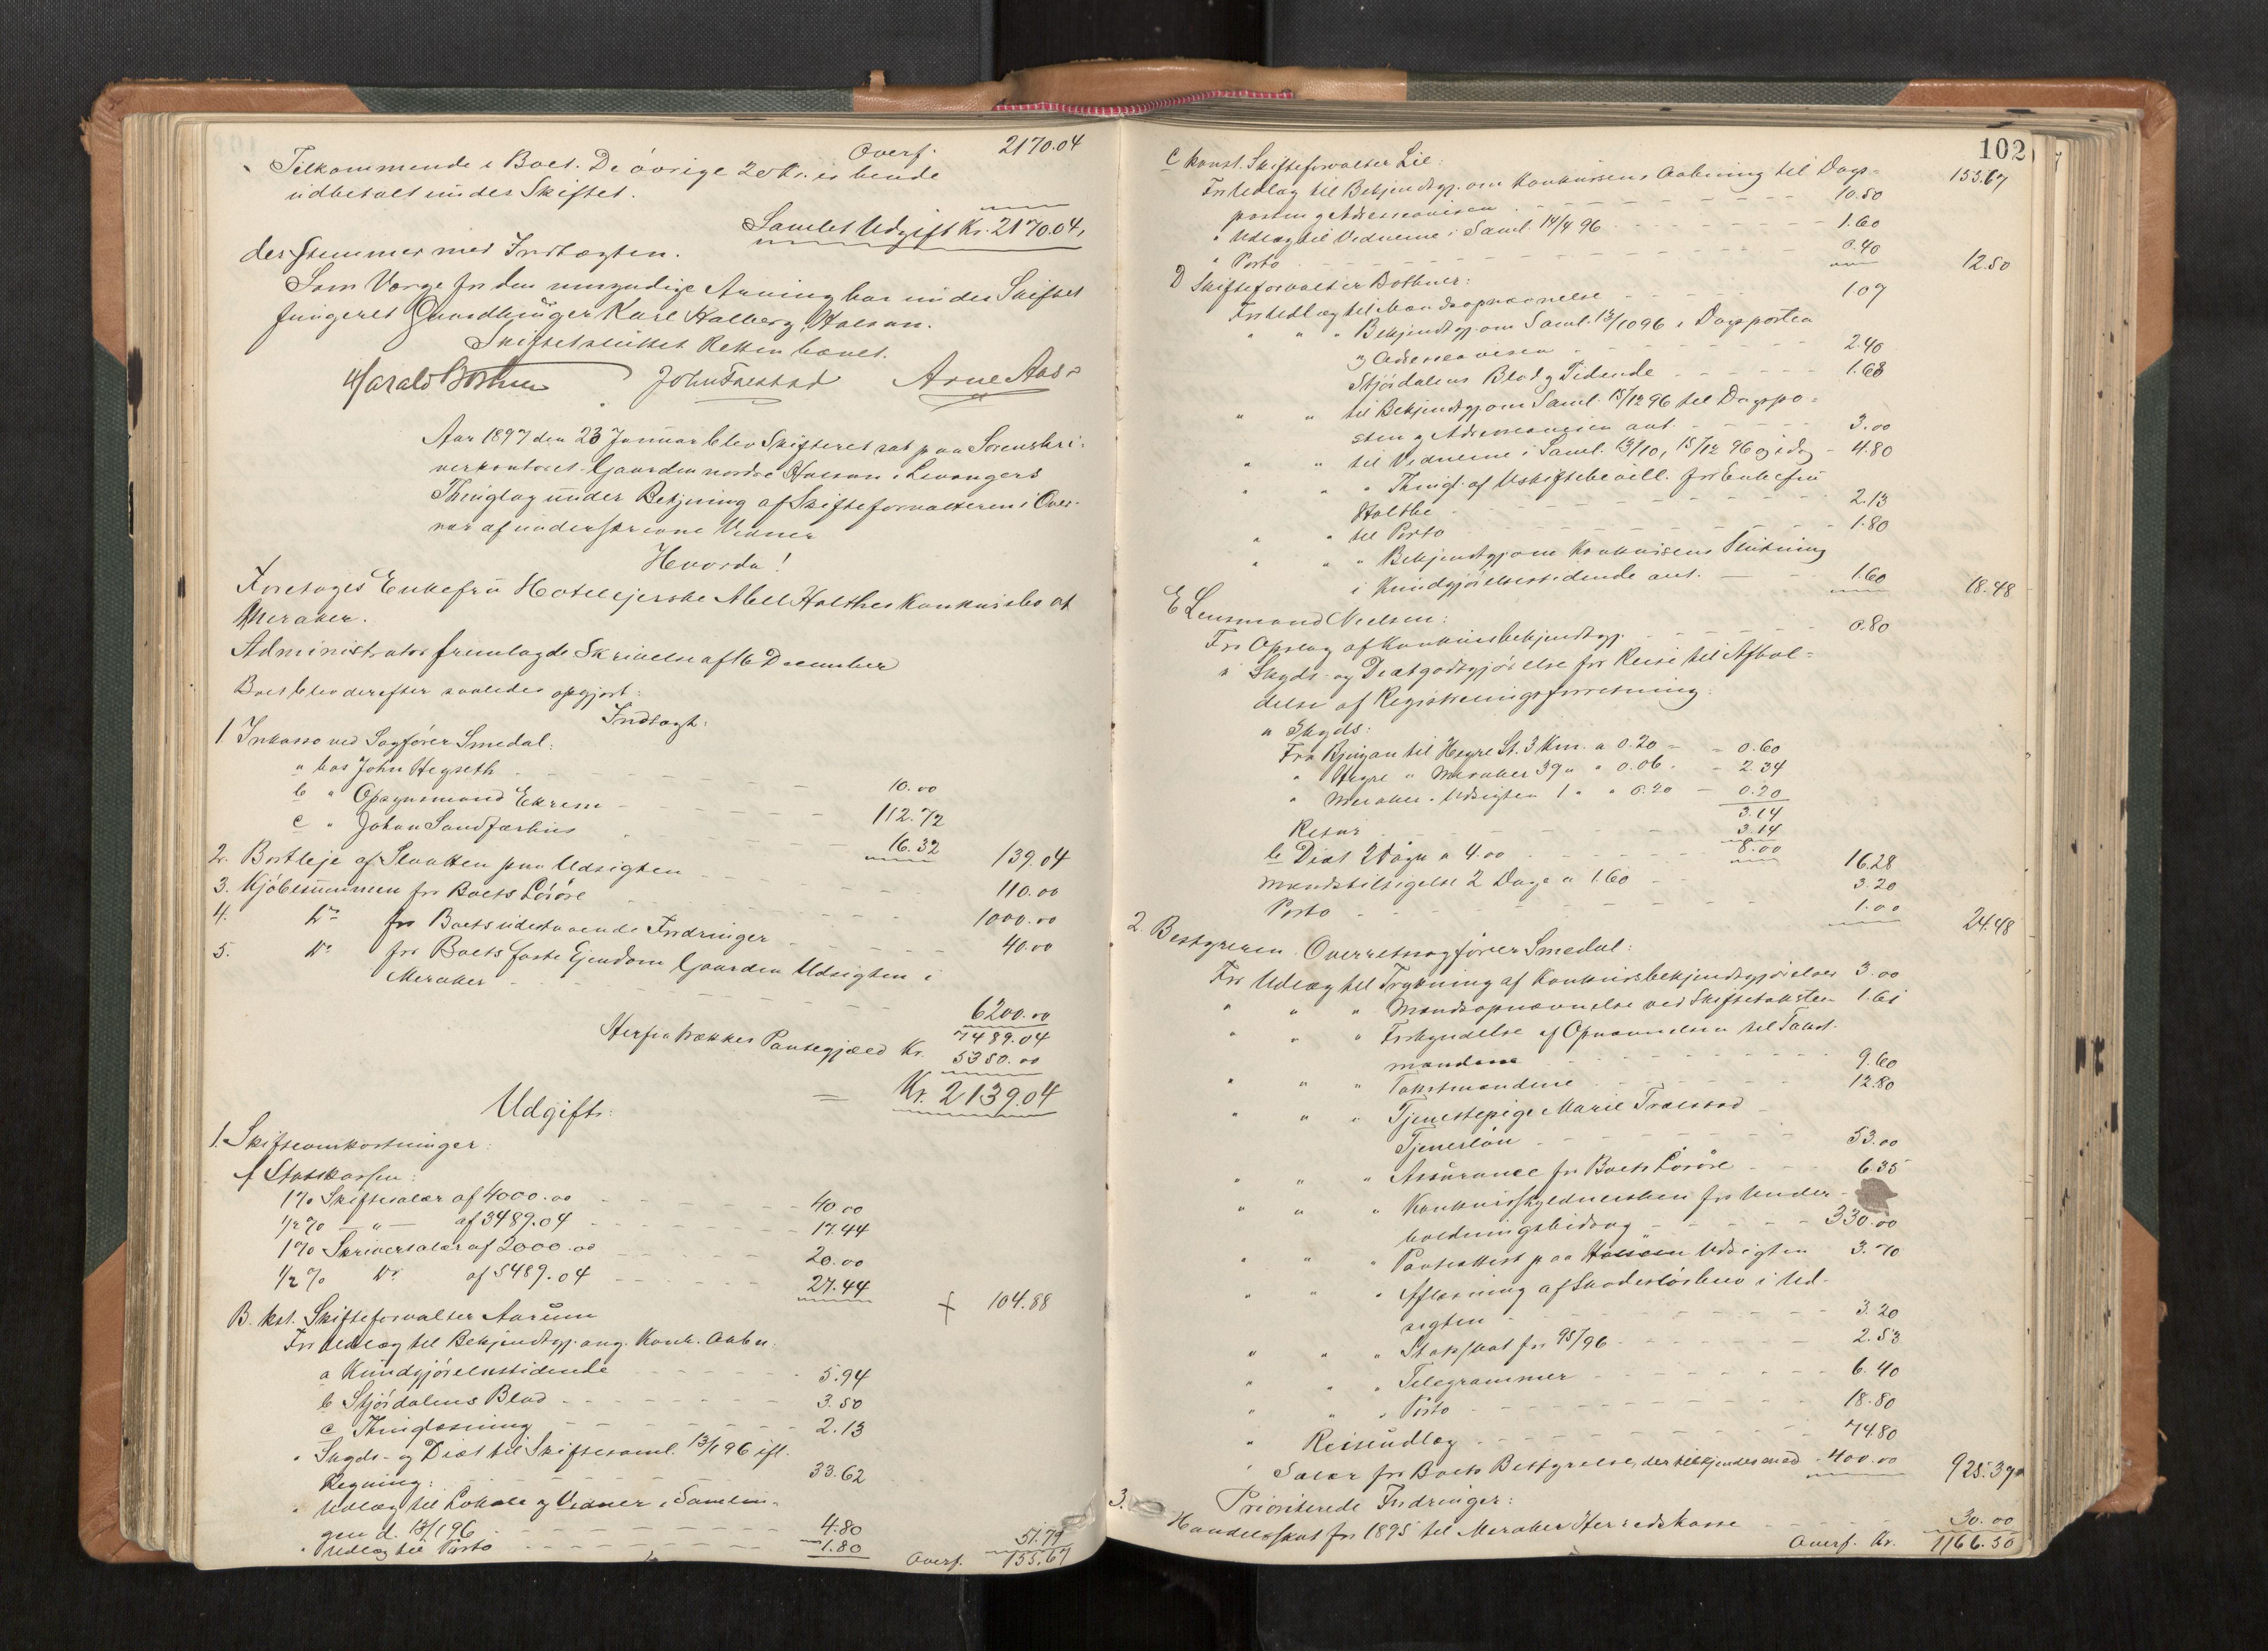 Overf. 2170.04
Tilkommende i Boet. De øvrige 20 Kr. er hende
udbetalt under Skiftet.
Samlet Udgift Kr. 2170.04,
der stemmer med Indtægten.
Som Værge for den umyndige Arving har under Skiftet
fungeret Gaardbruger Karl Halberg Halsan.
Skiftet sluttet Retten hævet.
Harald Bothner John Frestad Arne Aas
Aar 1897 den 23 Januar blev Skifteret sat paa Sorenskri-
verkontoret Gaarden nordre Halsan i Levangers
Thinglag under Betjening af Skifteforvalteren i Over-
vær af underskrevne Vidner
Hvorda!
Foretoges Enkefru Hotelejerske Abel Holthes Konkursbo at
Meraker.
Administrator fremlagde Skrivelse af 16 December
Boet blev derefter saaledes opgjort:
Indtægt:
1. Inkasso ved Sagfører Smedal:
a hos John Hegseth 10.00
b " Opsynsmand Ekrem 112.72
c " Johan Sandfærhus 16.32 139.04
2. Bortleje af Slaatten paa Udsigten 110.00
3. Kjøbesummen for Boets Løsøre 1000.00
4. Do for Boets udestaaende Fordringer 40.00
5. Do for Boets faste Ejendom Gaarden Udsigten i
Meraker 6200.00
7489.04
Herfra trækkes Pantegjæld Kr. 5350.00
= Kr. 2139.04
Udgift:
1. Skifteomkostninger:
A Statskassen:
1% Skiftesalær af 4000.00 40.00
1/2% — " — af 3489.04 17.44
1% Skriversalær af 2000.00 20.00
1/2% Do af 5489.04 27.44 104.88
B. kst. Skifteforvalter Aarum
For Udlæg til Bekjendtgj. ang. Konk. Aabn.
a Kundgjørelsestidende 5.94
b Stjørdalens Blad 3.50
c Thinglæsning 2.13
" Skyds- og Diæt til Skiftesaml. 13/1 96 ifl.
Regning: 33.62
" Udlæg til Lokale og Vidner i Samlin-
gen d. 13/1 96 4.80
" Udlæg til Porto 1.80 51.79
Overf. 155.67
102
C konst. Skifteforvalter Lie: 155.67
For Udlæg til Bekjendtgj. om Konkursens Aabning til Dags-
posten og Adresseavisen 10.50
" Udlæg til Vidnerne i Saml. 14/4 96 1.60
" Porto 0.40 12.50
D Skifteforvalter Bothner:
For Udlæg til Mandsopnævnelse 1.07
" " " Bekjendtgj. om Saml. 13/10 96 i Dagsposten
og Adresseavisen 2.40
Stjørdalens Blad og Tidende 1.68
" " til Bekjendtgj. om Saml. 15/12 96 til Dagspo-
sten og Adresseavisen ant. 3.00
" " til Vidnerne i Saml. 13/10, 15/12 96 og idag 4.80
" " " Thingl. af Uskiftebevill. for Enkefru
Holthe 2.13
" " til Porto 1.80
" " " Bekjendtgj. om Konkursens Slutning
i Kundgjørelsestidende ant. 1.60 18.48
E Lensmand Nielsen:
For Opslag af Konkursbekjendtgj. 0.80
" Skyds- og Diætgodtgjørelse for Reise til Afhol-
delse af Registreringsforretning:
a Skyds:
Fra Bjugan til Hegre St. 3 Km. a 0.20 = 0.60
" Hegre " Meraker 39 " " 0.06 - 2.34
" Meraker " Udsigten 1 " " 0.20 - 0.20
3.14
Retur 3.14
b Diæt 2 Døgn a 4.00 8.00 16.28
Mandstilsigelse 2 Dage a 1.60 3.20
Porto 1.00 24.48
2. Bestyreren Overretssagfører Smedal:
For Udlæg til Trykning af Konkursbekjendtgjørelser 3.00
" " " Mandsopnævnelse ved Skiftetaksten 1.61
" " " Forkyndelse af Opnævnelsen til Takst-
mændene 9.60
" " " Takstmændene 12.80
" " " Tjenestepige Marie Trælstad
Tjenerløn 53.00
" " " Assurance for Boets Løsøre 6.35
" " " Konkursskyldnersken for Under-
holdningsbidrag 330.00
" " " Panteattest paa Udsigten 3.70
" " " Aflæsning af Skadesløsbrev i Ud-
sigten 3.20
" " " Statsskat for 95/96 2.53
" " " Telegrammer 6.40
" " " Porto 18.80
" Reiseudlæg 74.80
" Salær for Boets Bestyrelse, der tilkjendes med 400.00 925.37
3. Prioriterede Fordringer:
Handelsskat for 1895 til Meraker Herredskasse 30.00
Overf. Kr. 1166.50